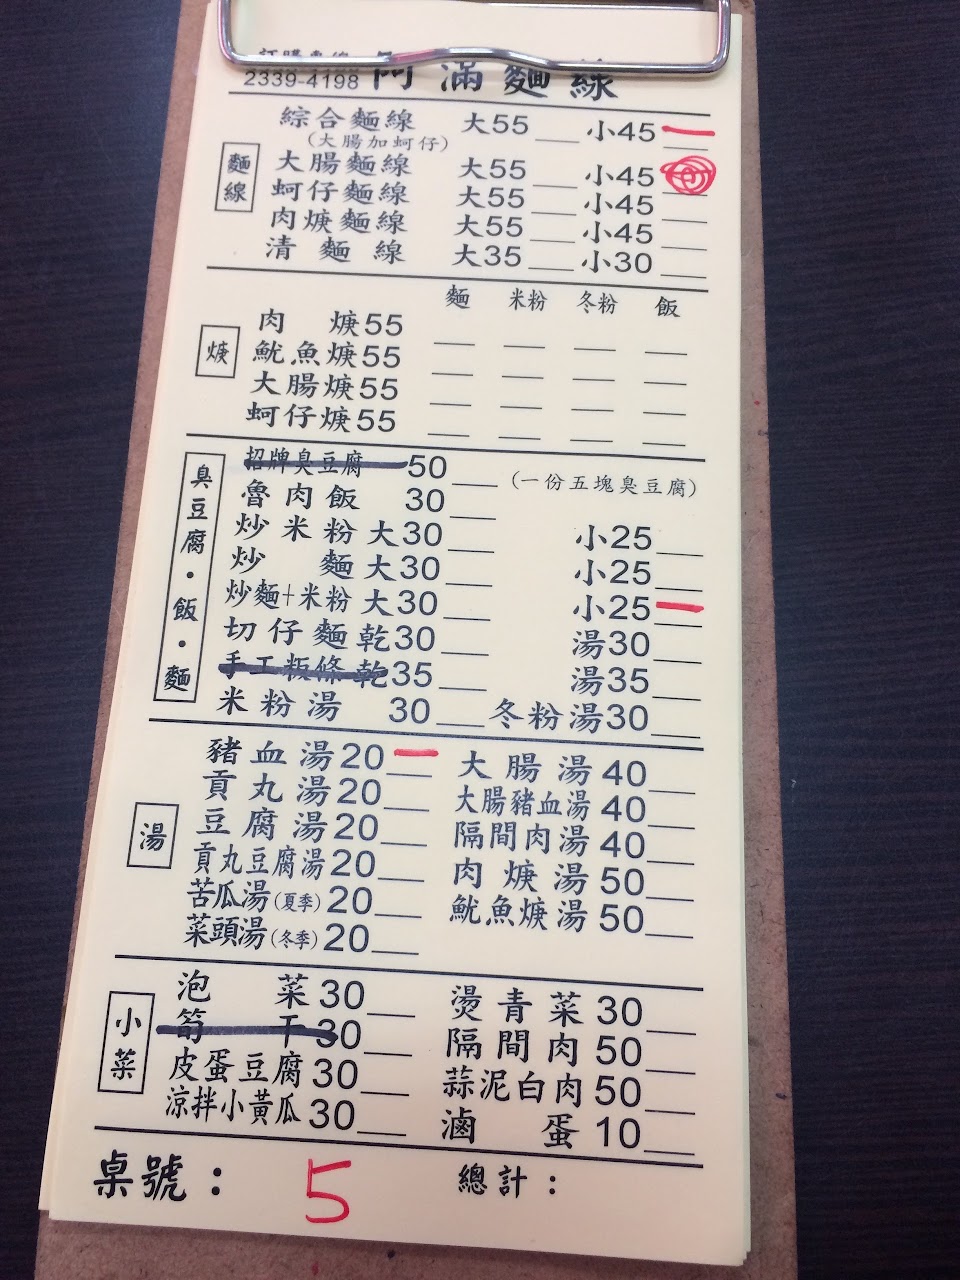 2339-4198 阿滿麵線
麵線
綜合麵線 大55 小45 一
(大腸加蚵仔)
大腸麵線 大55 小45
蚵仔麵線 大55 小45
肉焿麵線 大55 小45
清麵線 大35 小30
麵 米粉 冬粉 飯
焿
肉焿55
魷魚焿55
大腸焿55
蚵仔焿55
臭豆腐・飯・麵
招牌臭豆腐 50 (一份五塊臭豆腐)
魯肉飯 30
炒米粉 大30 小25
炒麵 大30 小25
炒麵+米粉 大30 小25 一
切仔麵 乾30 湯30
手工粄條 乾35 湯35
米粉湯 30 冬粉湯30
湯
豬血湯20 一 大腸湯40
貢丸湯20 大腸豬血湯40
豆腐湯20 隔間肉湯40
貢丸豆腐湯20 肉焿湯50
苦瓜湯(夏季)20 魷魚焿湯50
菜頭湯(冬季)20
小菜
泡菜30 燙青菜30
筍干30 隔間肉50
皮蛋豆腐30 蒜泥白肉50
涼拌小黃瓜30 滷蛋10
桌號： 5 總計：